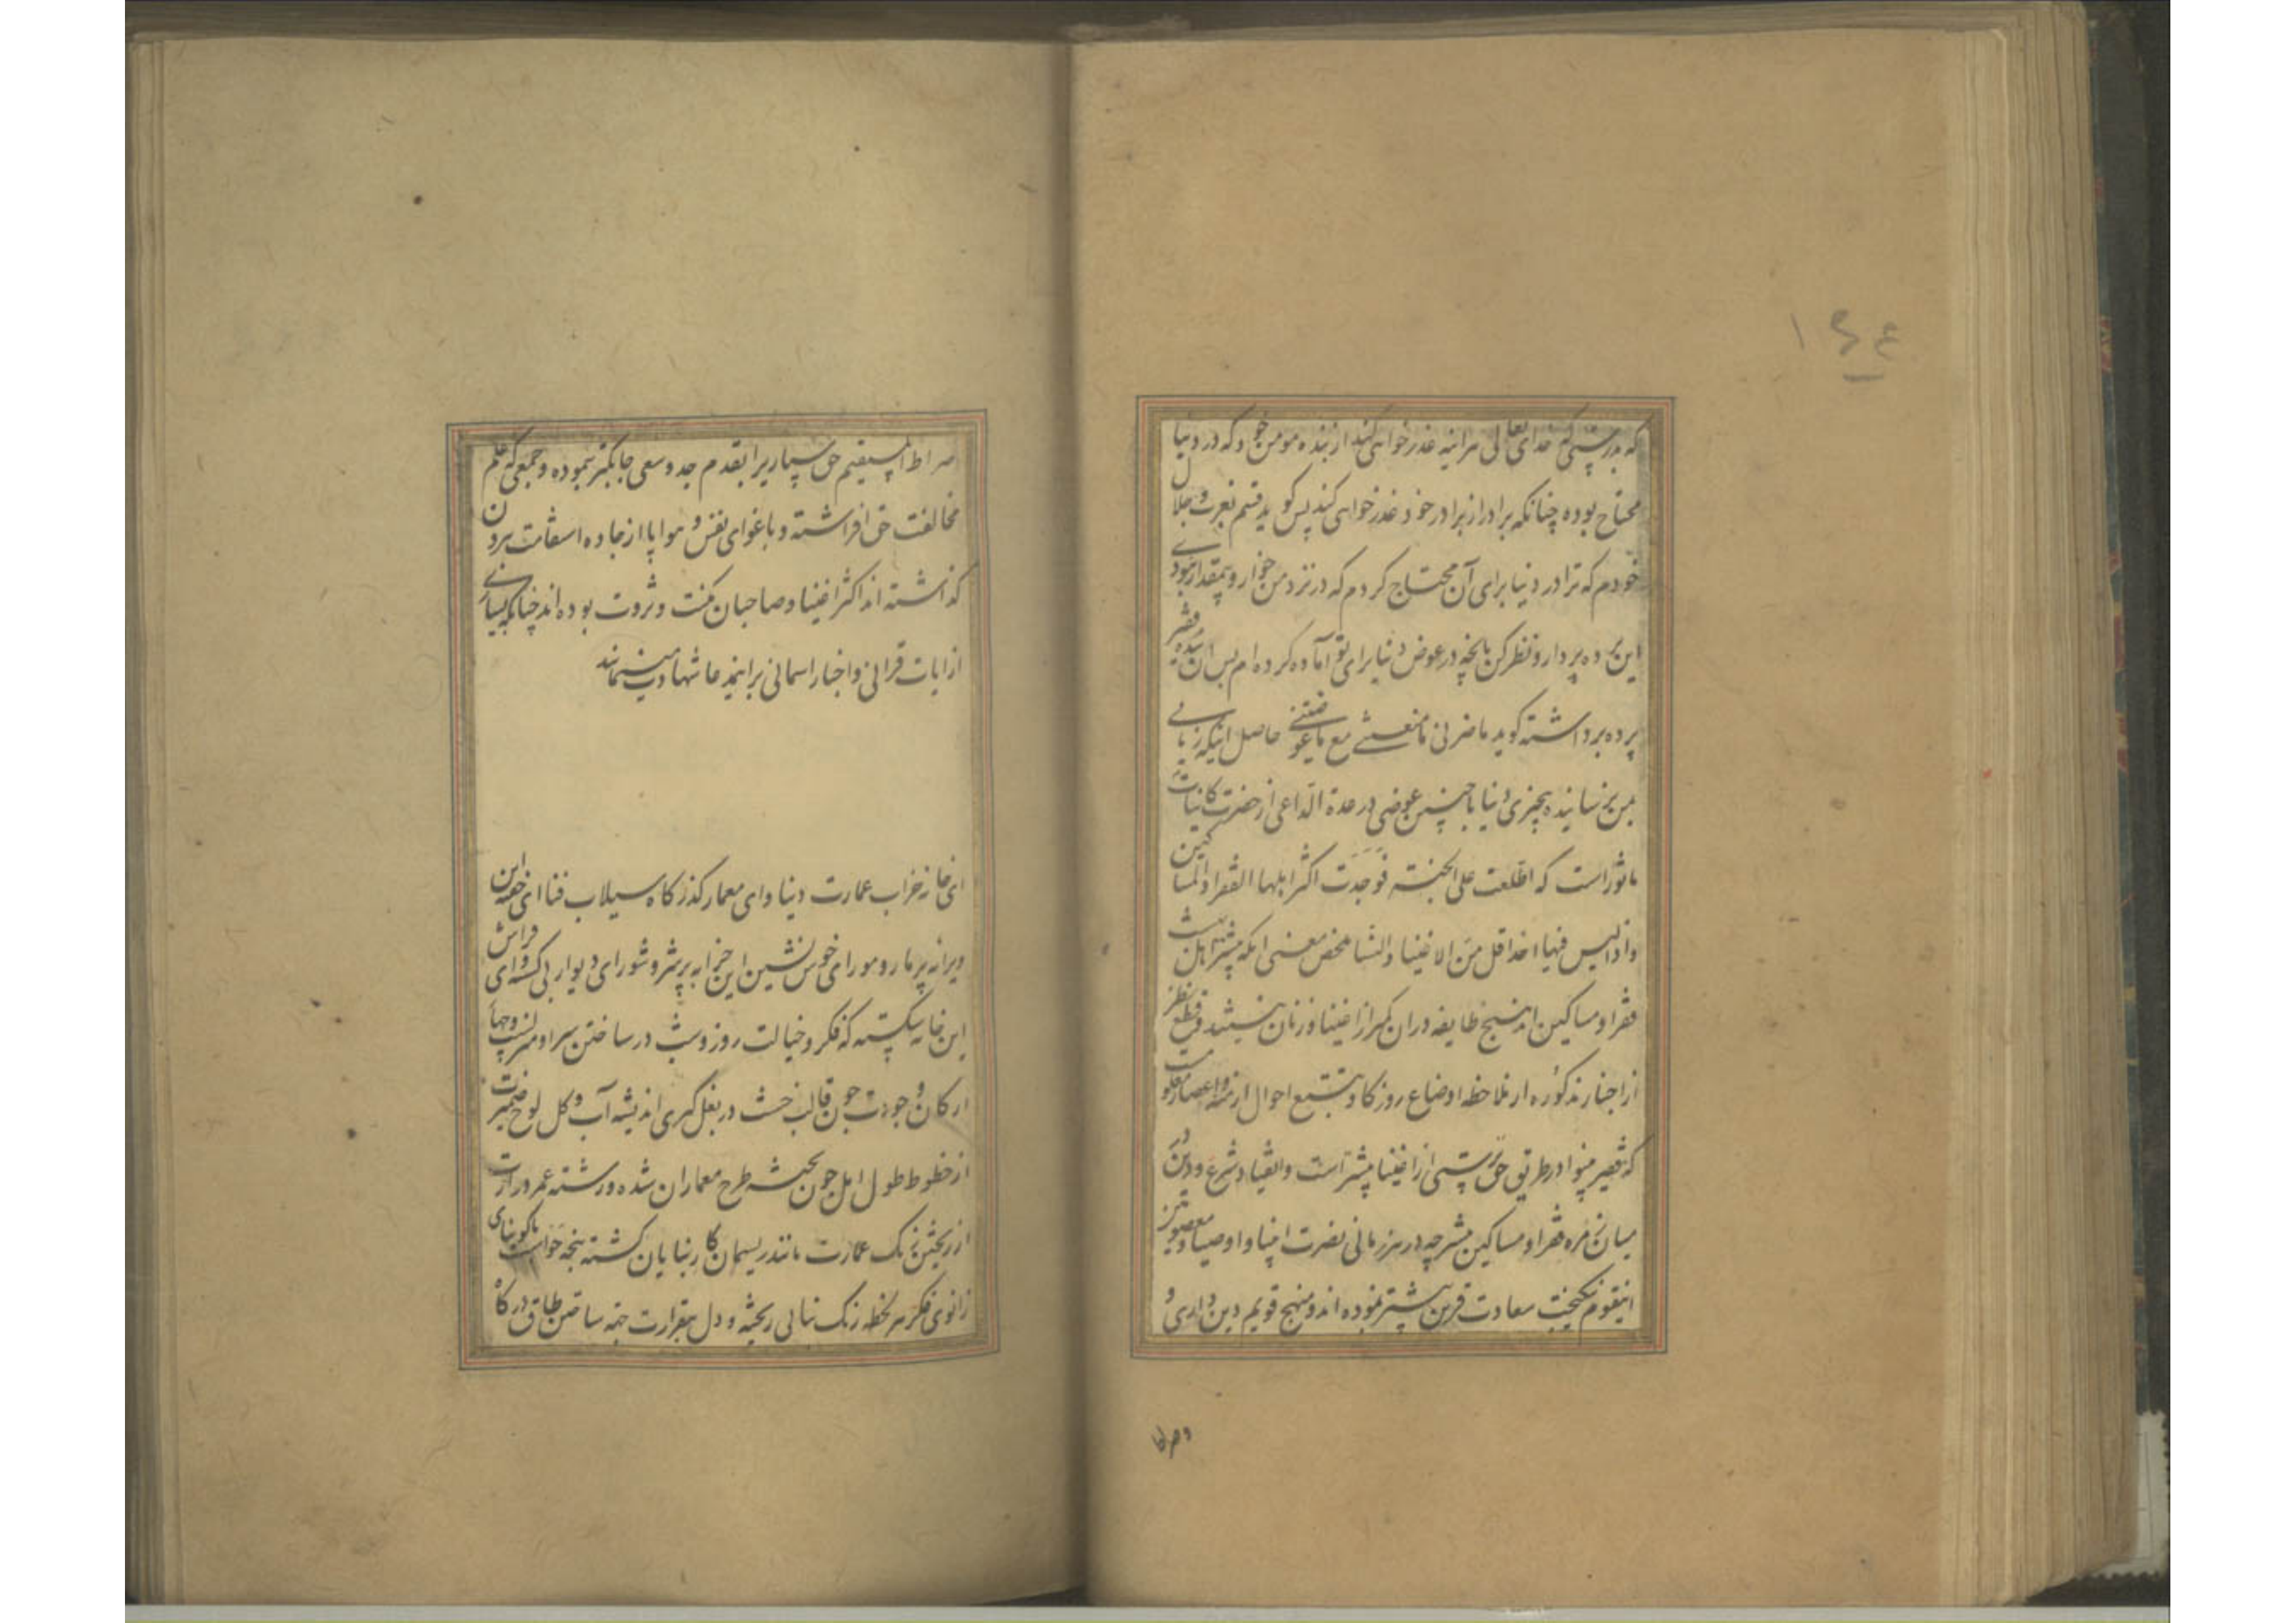 که بدرستی که خدای تعالی هراینه عذرخواهی کند از بنده مومن خود که در دنیا
محتاج بوده چنانکه برادر از برادر خود عذرخواهی کند پس کوید قسم بعزت و جلال
خودم که ترا در دنیا برای آن محتاج نکردم که در نزد من خوار و بیمقدار بودی
این پرده بردار و نظر کن بانچه در عوض دنیا برای تو آماده کرده ام پس ان بنده فقیر
پرده برداشته کوید ما ضرنی ما منعتنی مع ما عوضتنی حاصل اینکه زیانی
بمن نرسانیده بچیزی دنیا با چنین عوضی در عدة الداعی از حضرت کاینات
ماثور است که اطلعت علی الجنة فوجدت اکثر اهلها الفقراء والمساکین
واذا لیس فیها احد اقل من الاغنیا والنسا ملخص معنی انکه بیشتر اهل بهشت
فقرا و مساکین اند و هیچ طایفه دران کمتر از اغنیا و زنان نیستند قطع نظر
از اخبار مذکوره از ملاحظه اوضاع روزکار و تتبع احوال ازمنه و اعصار معلومست
که فقیر بینوا در طریق حق پرستی از اغنیا بیشتر است و انقیاد شرع و دین در
میان زمره فقرا و مساکین بیشتر چه در هر زمانی نصرت انبیا و اوصیاء معصومین نیز
اینقوم نیکبخت سعادت قرین بیشتر نموده اند و منهج قویم دین داری و
صراط المستقیم حق سپاری را بقدم جد و سعی جابکتر پیموده و جمعی که علم
مخالفت حق افراشته و باغوای نفس و هوا پا از جاده استقامت برون
کذاشته اند اکثر اغنیا و صاحبان مکنت و ثروت بوده اند چنانکه بسیاری
از ایات قرانی و اخبار اسمانی بر اینمدعا شهادت مینماید
ای خانه خراب عمارت دنیا و ای معمار کذرکاه سیلاب فنا ای جغد این
ویرانه پر مار و مور ای خوش نشین این خرابه پرشر و شور ای دیوار بی کس و ای فراش
این خانه شکسته که فکر و خیالت روز و شب در ساختن سرا و منزلست و جهات
ارکان وجودت چون قالب خشت در بغل کیری اندیشه آب و کل لوح ضمیرت
از خطوط طول امل چون تخته طرح معماران شده و رشته عمر درازت
از ریختن رنک عمارت مانند ریسمان کار بنایان کشته پنجه
زانوی فکر هر لحظه رنک بنائی ریخته و دل بیقرارت جهة ساختن طاق درکاه